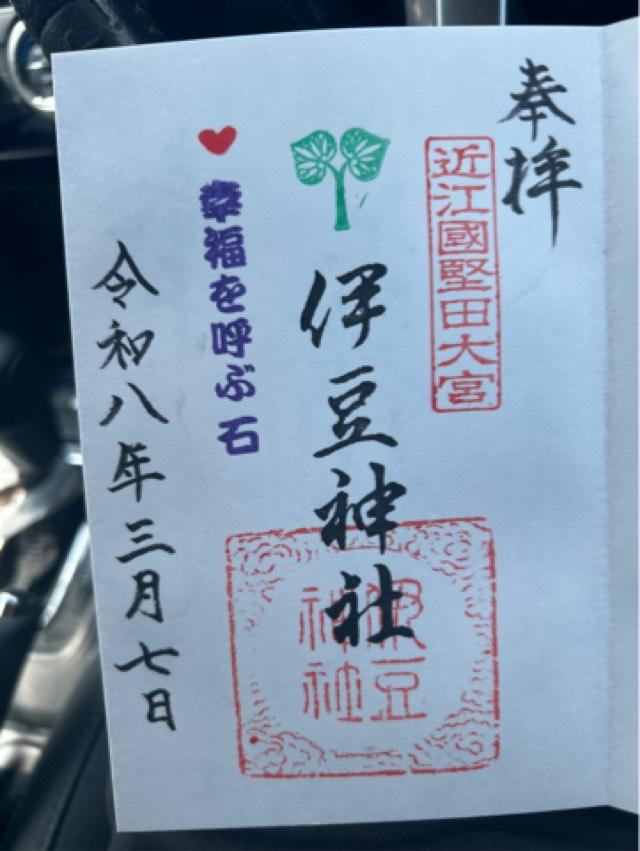 奉拝
近江國堅田大宮
伊豆神社
伊豆
神社
幸福を呼ぶ石
令和八年三月七日